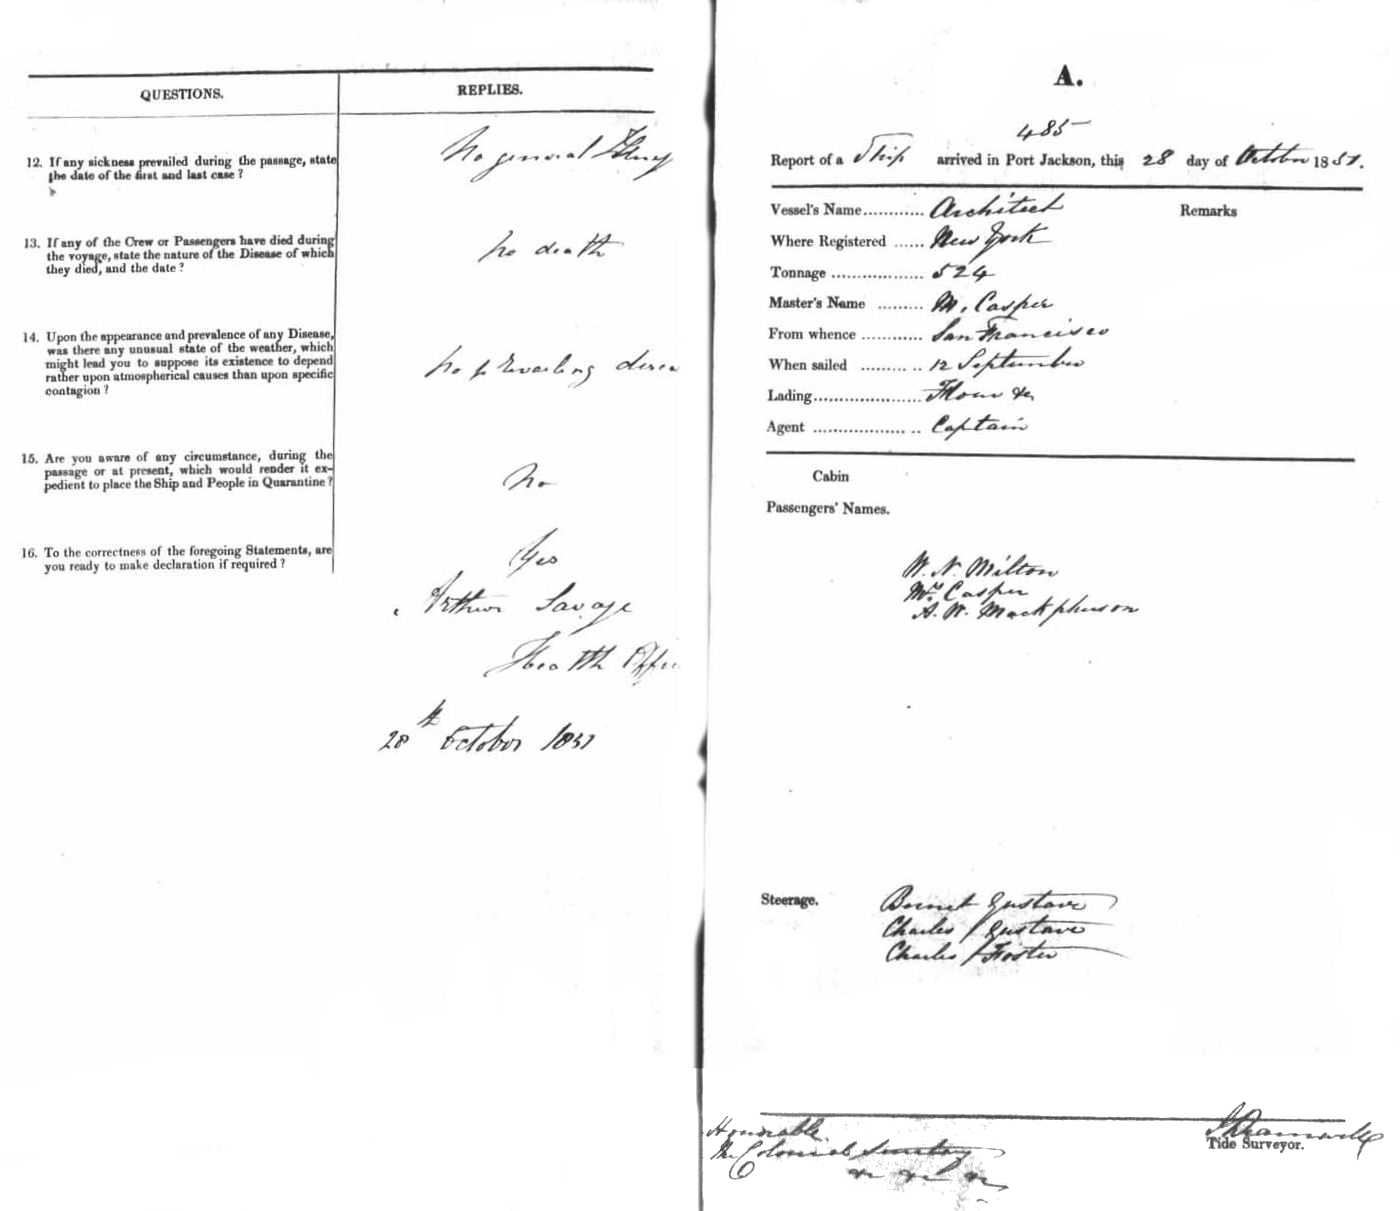 QUESTIONS.
REPLIES.
12. If any sickness prevailed during the passage, state
the date of the first and last case ?
No general
13. If any of the Crew or Passengers have died during
the voyage, state the nature of the Disease of which
they died, and the date ?
No death
14. Upon the appearance and prevalence of any Disease,
was there any unusual state of the weather, which
might lead you to suppose its existence to depend
rather upon atmospherical causes than upon specific
contagion ?
No prevailing
15. Are you aware of any circumstance, during the
passage or at present, which would render it ex-
pedient to place the Ship and People in Quarantine ?
No
16. To the correctness of the foregoing Statements, are
you ready to make declaration if required ?
Yes
Arthur Savage
Health Offic
28th October 1851
A.
485
Report of a Ship arrived in Port Jackson, this 28 day of October 1851.
Vessel's Name............ Architect
Remarks
Where Registered ...... New York
Tonnage .................. 524
Master's Name ......... M. Casper
From whence ............ San Francisco
When sailed ........... 12 September
Lading..................... Flour &c
Agent ..................... Captain
Cabin
Passengers' Names.
W. N. Milton
Mrs. Casper
A. W. Mackpherson
Steerage.
Gustave
Charles Gustave
Charles Foster
Honorable
The Colonial Secretary
&c &c &c
Tide Surveyor.